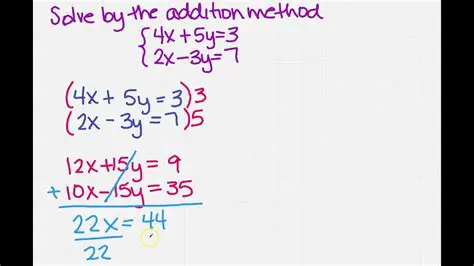 Solve by the addition method
{4x+5y=3
2x-3y=7
(4x+5y=3)3
(2x-3y=7)5
12x+15y=9
+10x-15y=35
22x=44
22